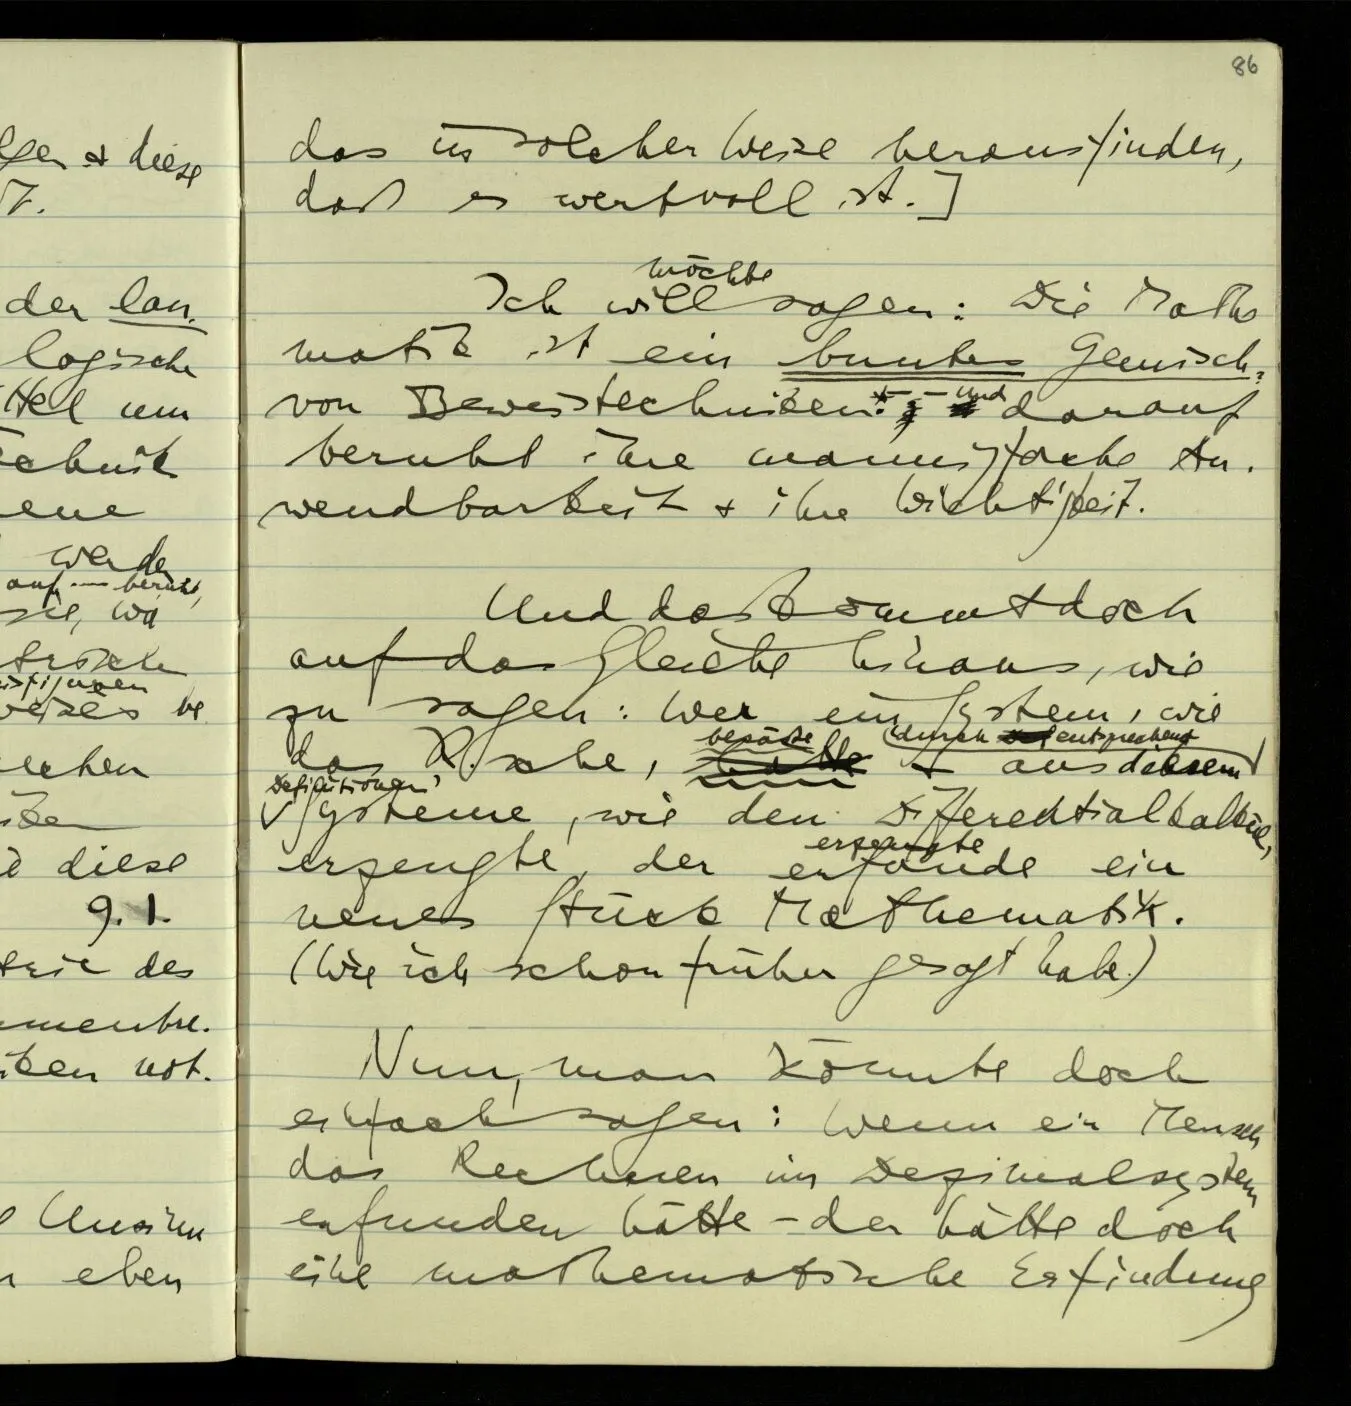 lgen & diese
T.
der lau.
logische
ttel um
echnik
ene
werde
auf — beruht,
sie, wo
trisch
weises be
echen
diese
9.1.
trie des
mentbe.
iken not.
Unsinn
n eben
86
das in solcher Weise herausfinden,
daß es wertvoll ist.]
möchte
Ich will sagen: Die Mathe
matik ist ein buntes Gemisch
von Beweistechniken. — — und darauf
beruht ihre mannigfache An-
wendbarkeit & ihre Wichtigkeit.
Und das kommt doch
auf das Gleiche hinaus, wie
zu sagen: Wer ein System, wie
besäße (durch entsprechende
das R.sche, hätte & aus diesem
Definitionen)
Systeme, wie den Differentialkalkül,
erzeugte
erzeugte, der erfände ein
neues Stück Mathematik.
(Wie ich schon früher gesagt habe.)
Nun, man könnte doch
einfach sagen: Wenn ein Mensch
das Rechnen im Dezimalsystem
erfunden hätte – der hätte doch
eine mathematische Erfindung